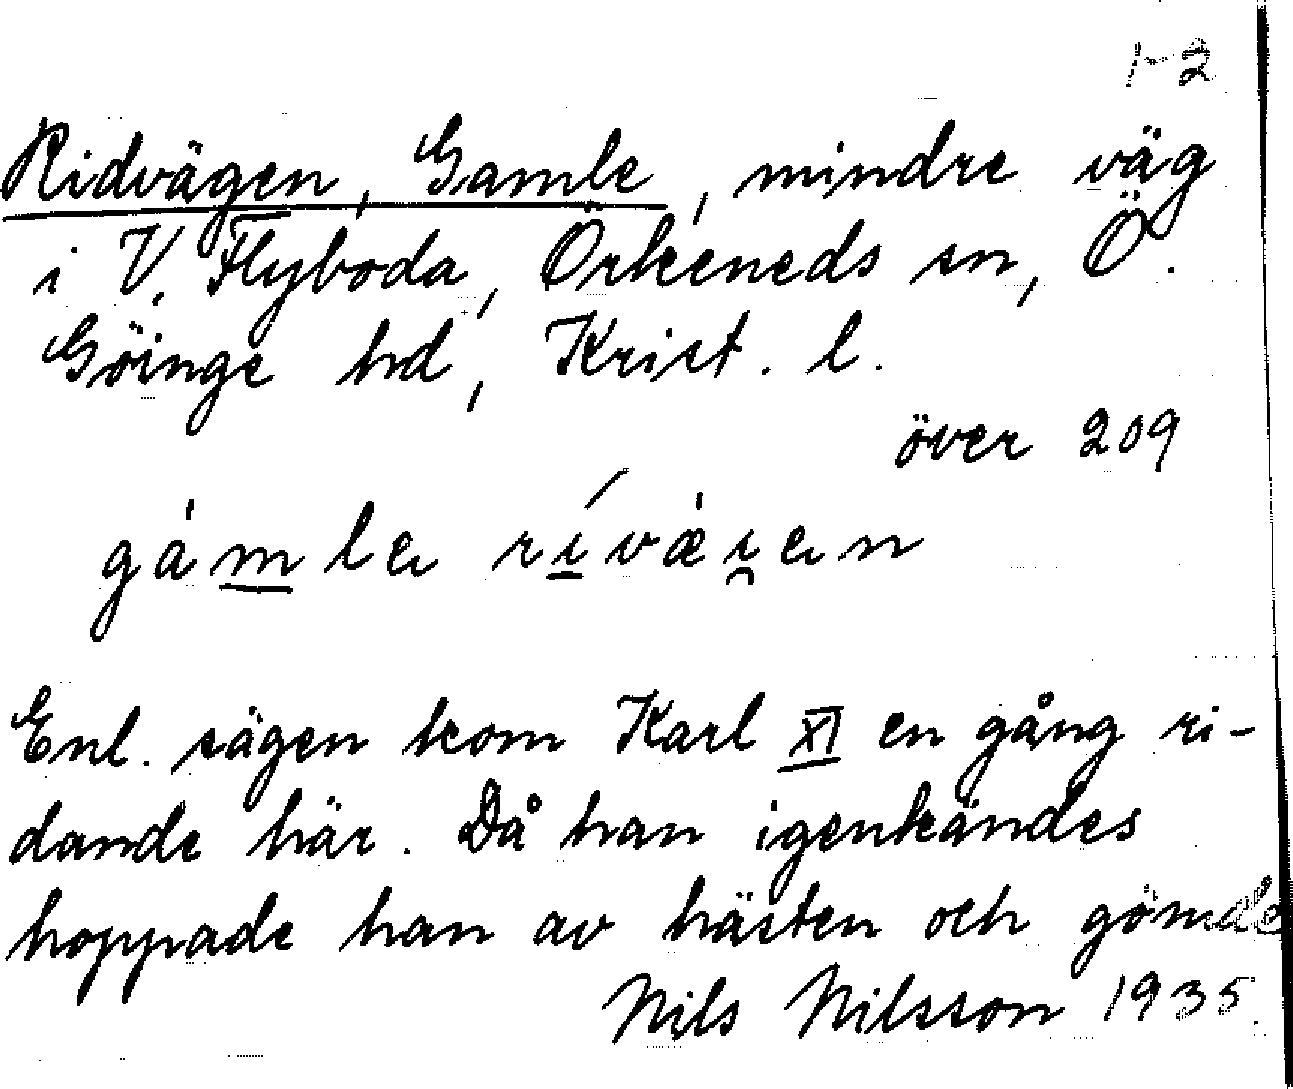 1-2
Ridvägen, Gamle, mindre väg
i V. Flyboda, Örkeneds sn, Ö.
Göinge hd, Krist. l.
över 209
gámle rívæ̀i̯en
Enl. sägen kom Karl XI en gång ri-
dande här. Då han igenkändes
hoppade han av hästen och gömde
Nils Nilsson 1935.